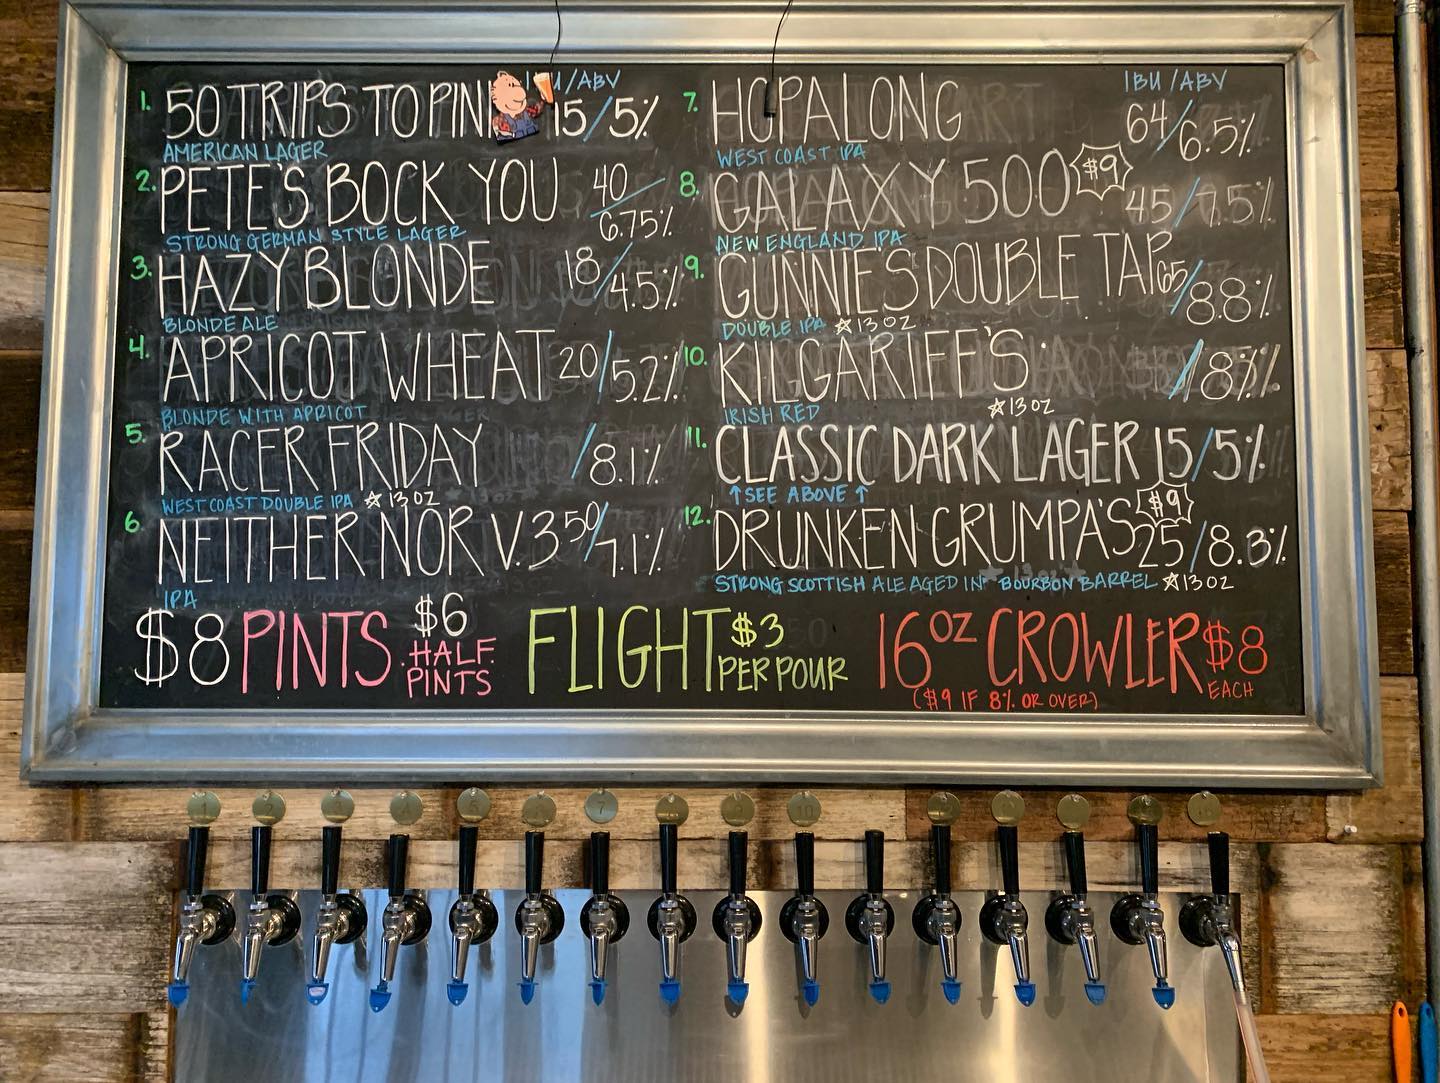 IBU/ABV
1. 50 TRIPS TO PINK 15/5%
AMERICAN LAGER
2. PETE'S BOCK YOU 40/6.75%
STRONG GERMAN STYLE LAGER
3. HAZY BLONDE 18/4.5%
BLONDE ALE
4. APRICOT WHEAT 20/5.2%
BLONDE WITH APRICOT
5. RACER FRIDAY /8.1%
WEST COAST DOUBLE IPA ☆13 OZ
6. NEITHER NOR V.3 50/7.1%
IPA
IBU/ABV
7. HOPALONG 64/6.5%
WEST COAST IPA
8. GALAXY 500 $9 45/7.5%
NEW ENGLAND IPA
9. GUNNIE'S DOUBLE TAP 65/8.8%
DOUBLE IPA ☆13 OZ
10. KILGARIFF'S /8%
IRISH RED ☆13 OZ
11. CLASSIC DARK LAGER 15/5%
↑SEE ABOVE↑
12. DRUNKEN GRUMPA'S $9 25/8.3%
STRONG SCOTTISH ALE AGED IN BOURBON BARREL ☆13 OZ
$8 PINTS $6 HALF PINTS
FLIGHT $3 PER POUR
16 OZ CROWLER $8 EACH
($9 IF 8% OR OVER)
1 2 3 4 5 7 9 10